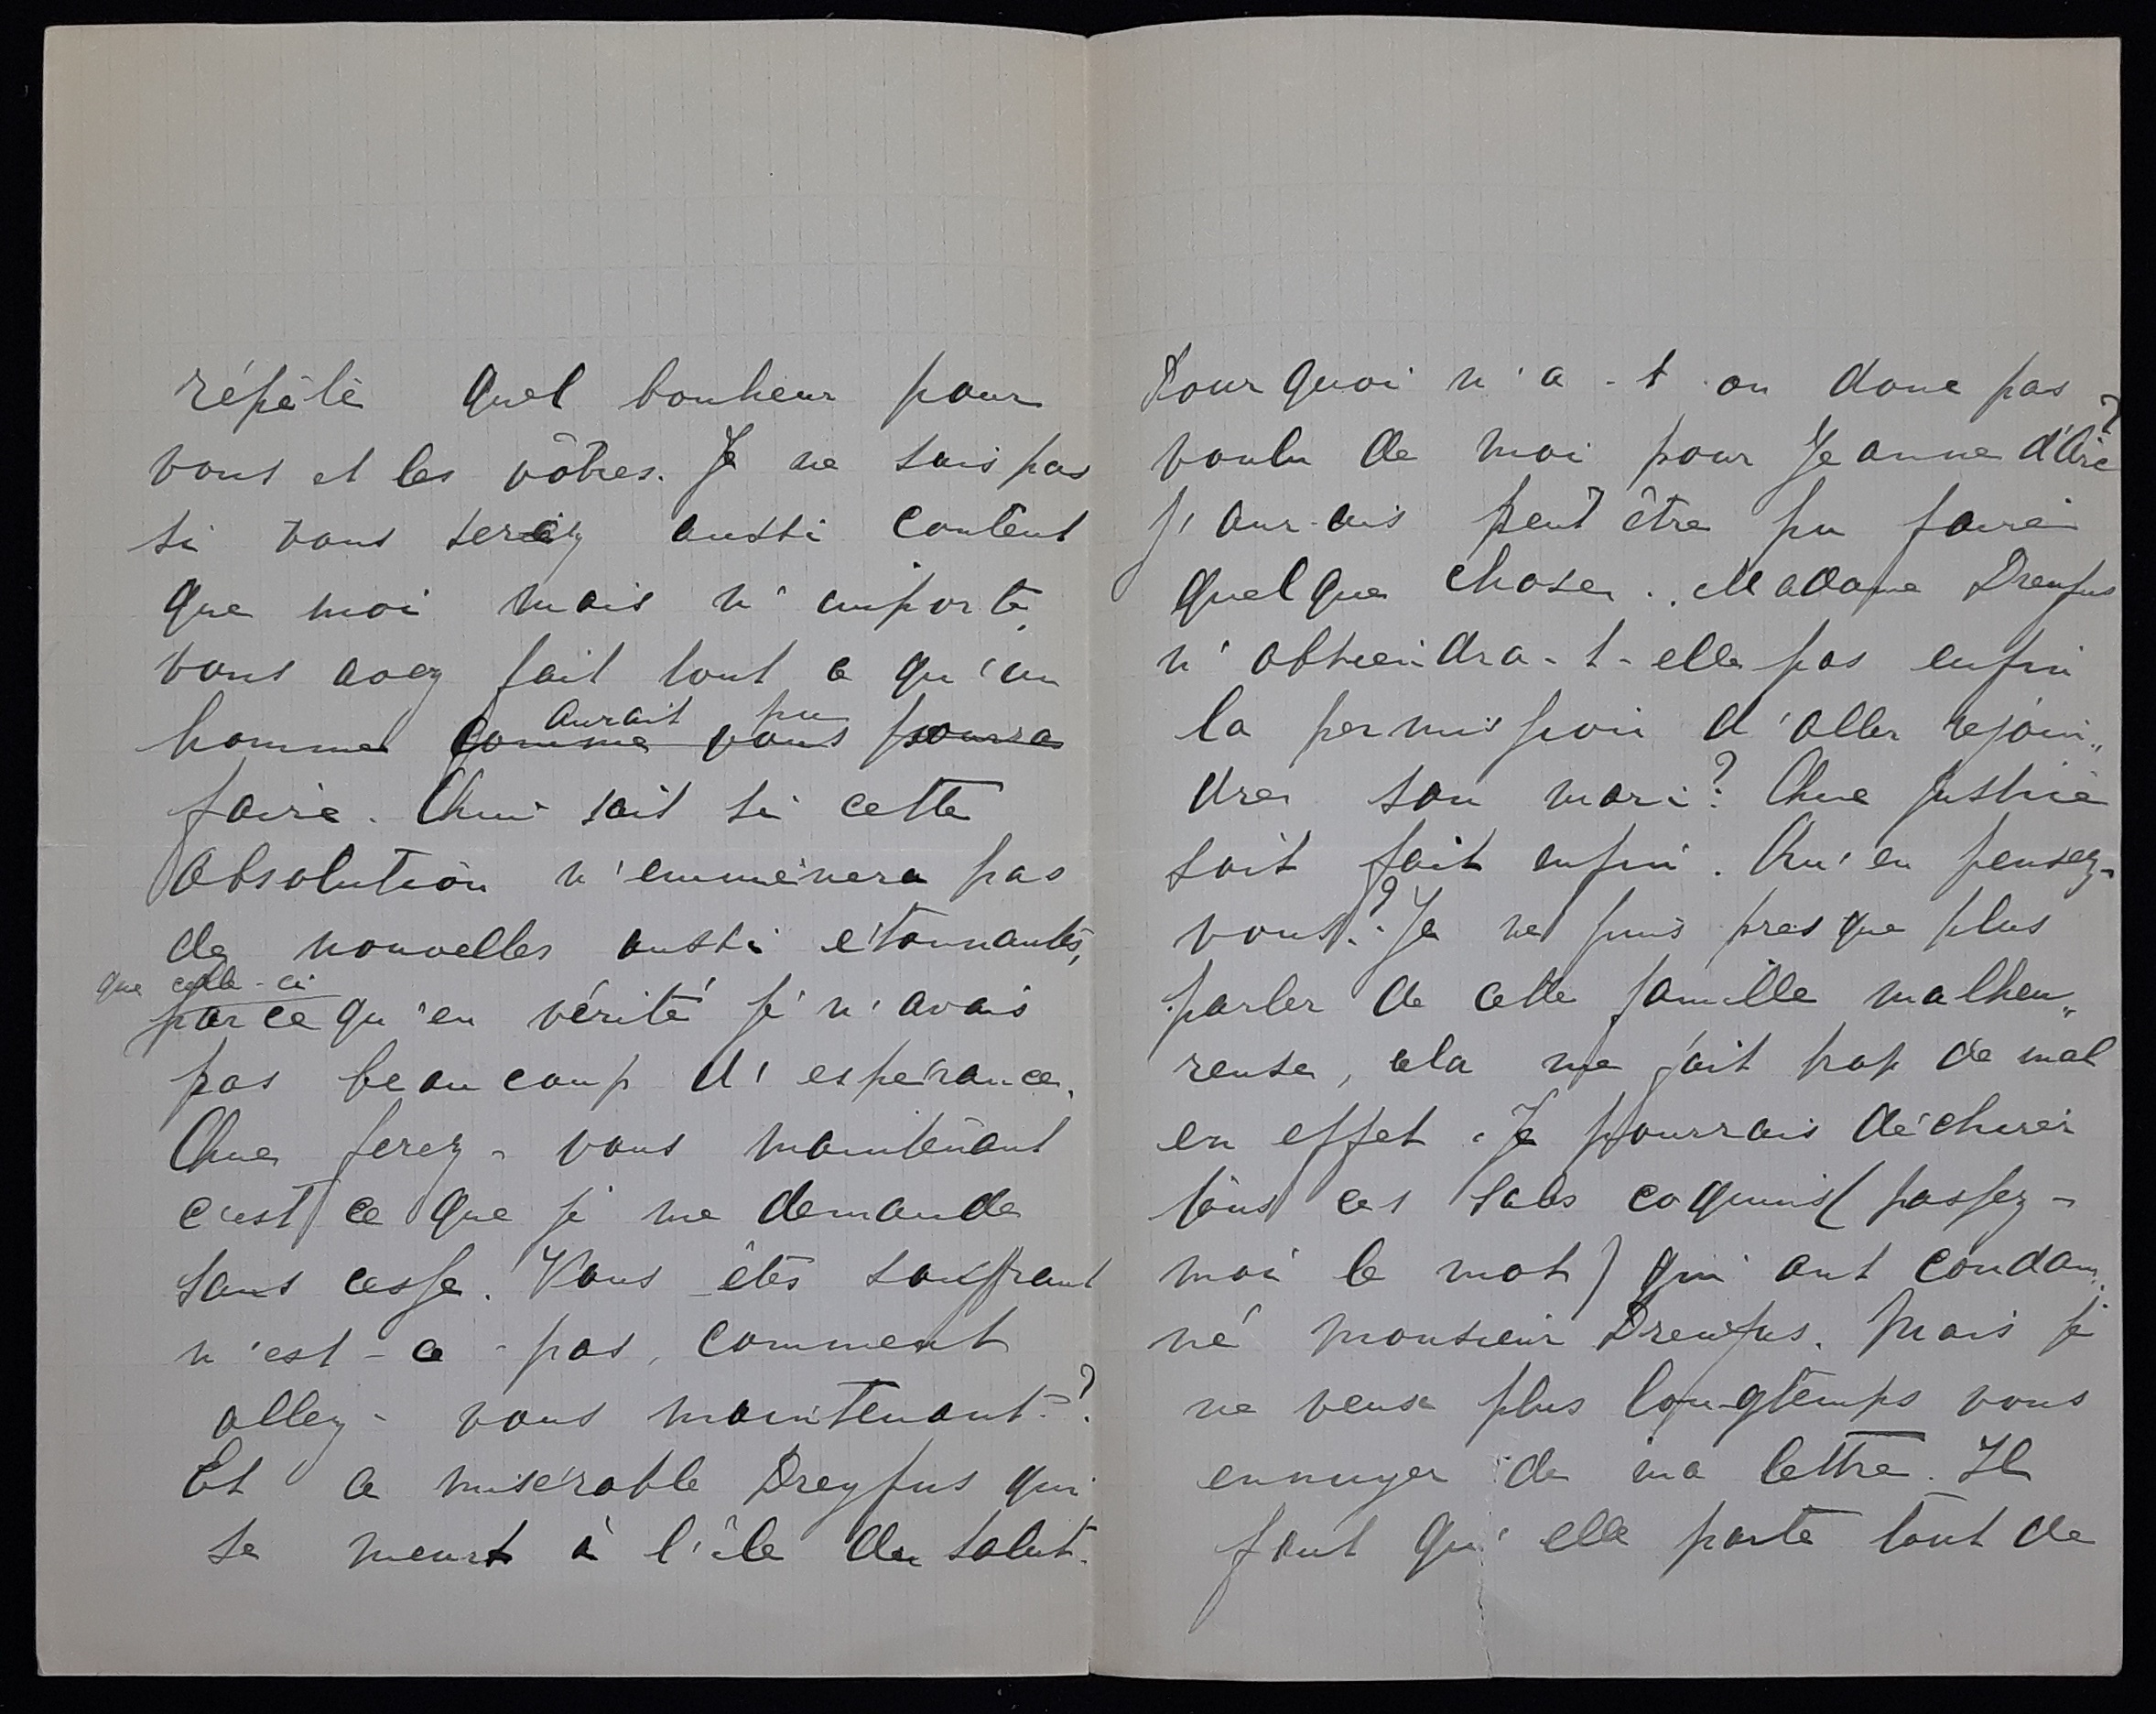 répète quel bonheur pour
vous et les vôtres. Je ne sais pas
si vous serez aussi content
que moi mais n'importe,
vous avez fait tout ce qu'un
aurait pu
homme comme vous pourra
faire. Qui sait si cette
absolution n'emmènera pas
de nouvelles aussi étonnantes,
que celle-ci
parce qu'en vérité je n'avais
pas beaucoup d'espérance.
Que ferez-vous maintenant
c'est ce que je me demande
sans cesse. Vous êtes souffrant
n'est-ce-pas, comment
allez-vous maintenant?
Et ce misérable Dreyfus qui
se meurt à l'île du Salut.
Pourquoi n'a-t-on donc pas
voulu de moi pour Jeanne d'Arc?
j'aurais peut être pu faire
quelque chose.. Madame Dreyfus
n'obtiendra-t-elle pas enfin
la permission d'aller rejoin„
dre son mari? Que justice
soit fait enfin. Qu'en pensez-
vous? Je ne puis presque plus
parler de cette famille malheu„
reuse, cela me fait trop de mal
en effet. Je pourrais déchirer
tous ces sales coquins (passez-
moi le mot) qui ont condam„
né monsieur Dreyfus. Mais je
ne veux plus longtemps vous
ennuyer de ma lettre. Il
faut qu'elle parte tout de